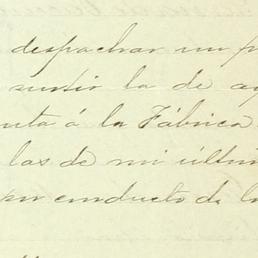 despachar un p
surtir la de a
nta á la Fábrica
las de mi últi
por conducto de l